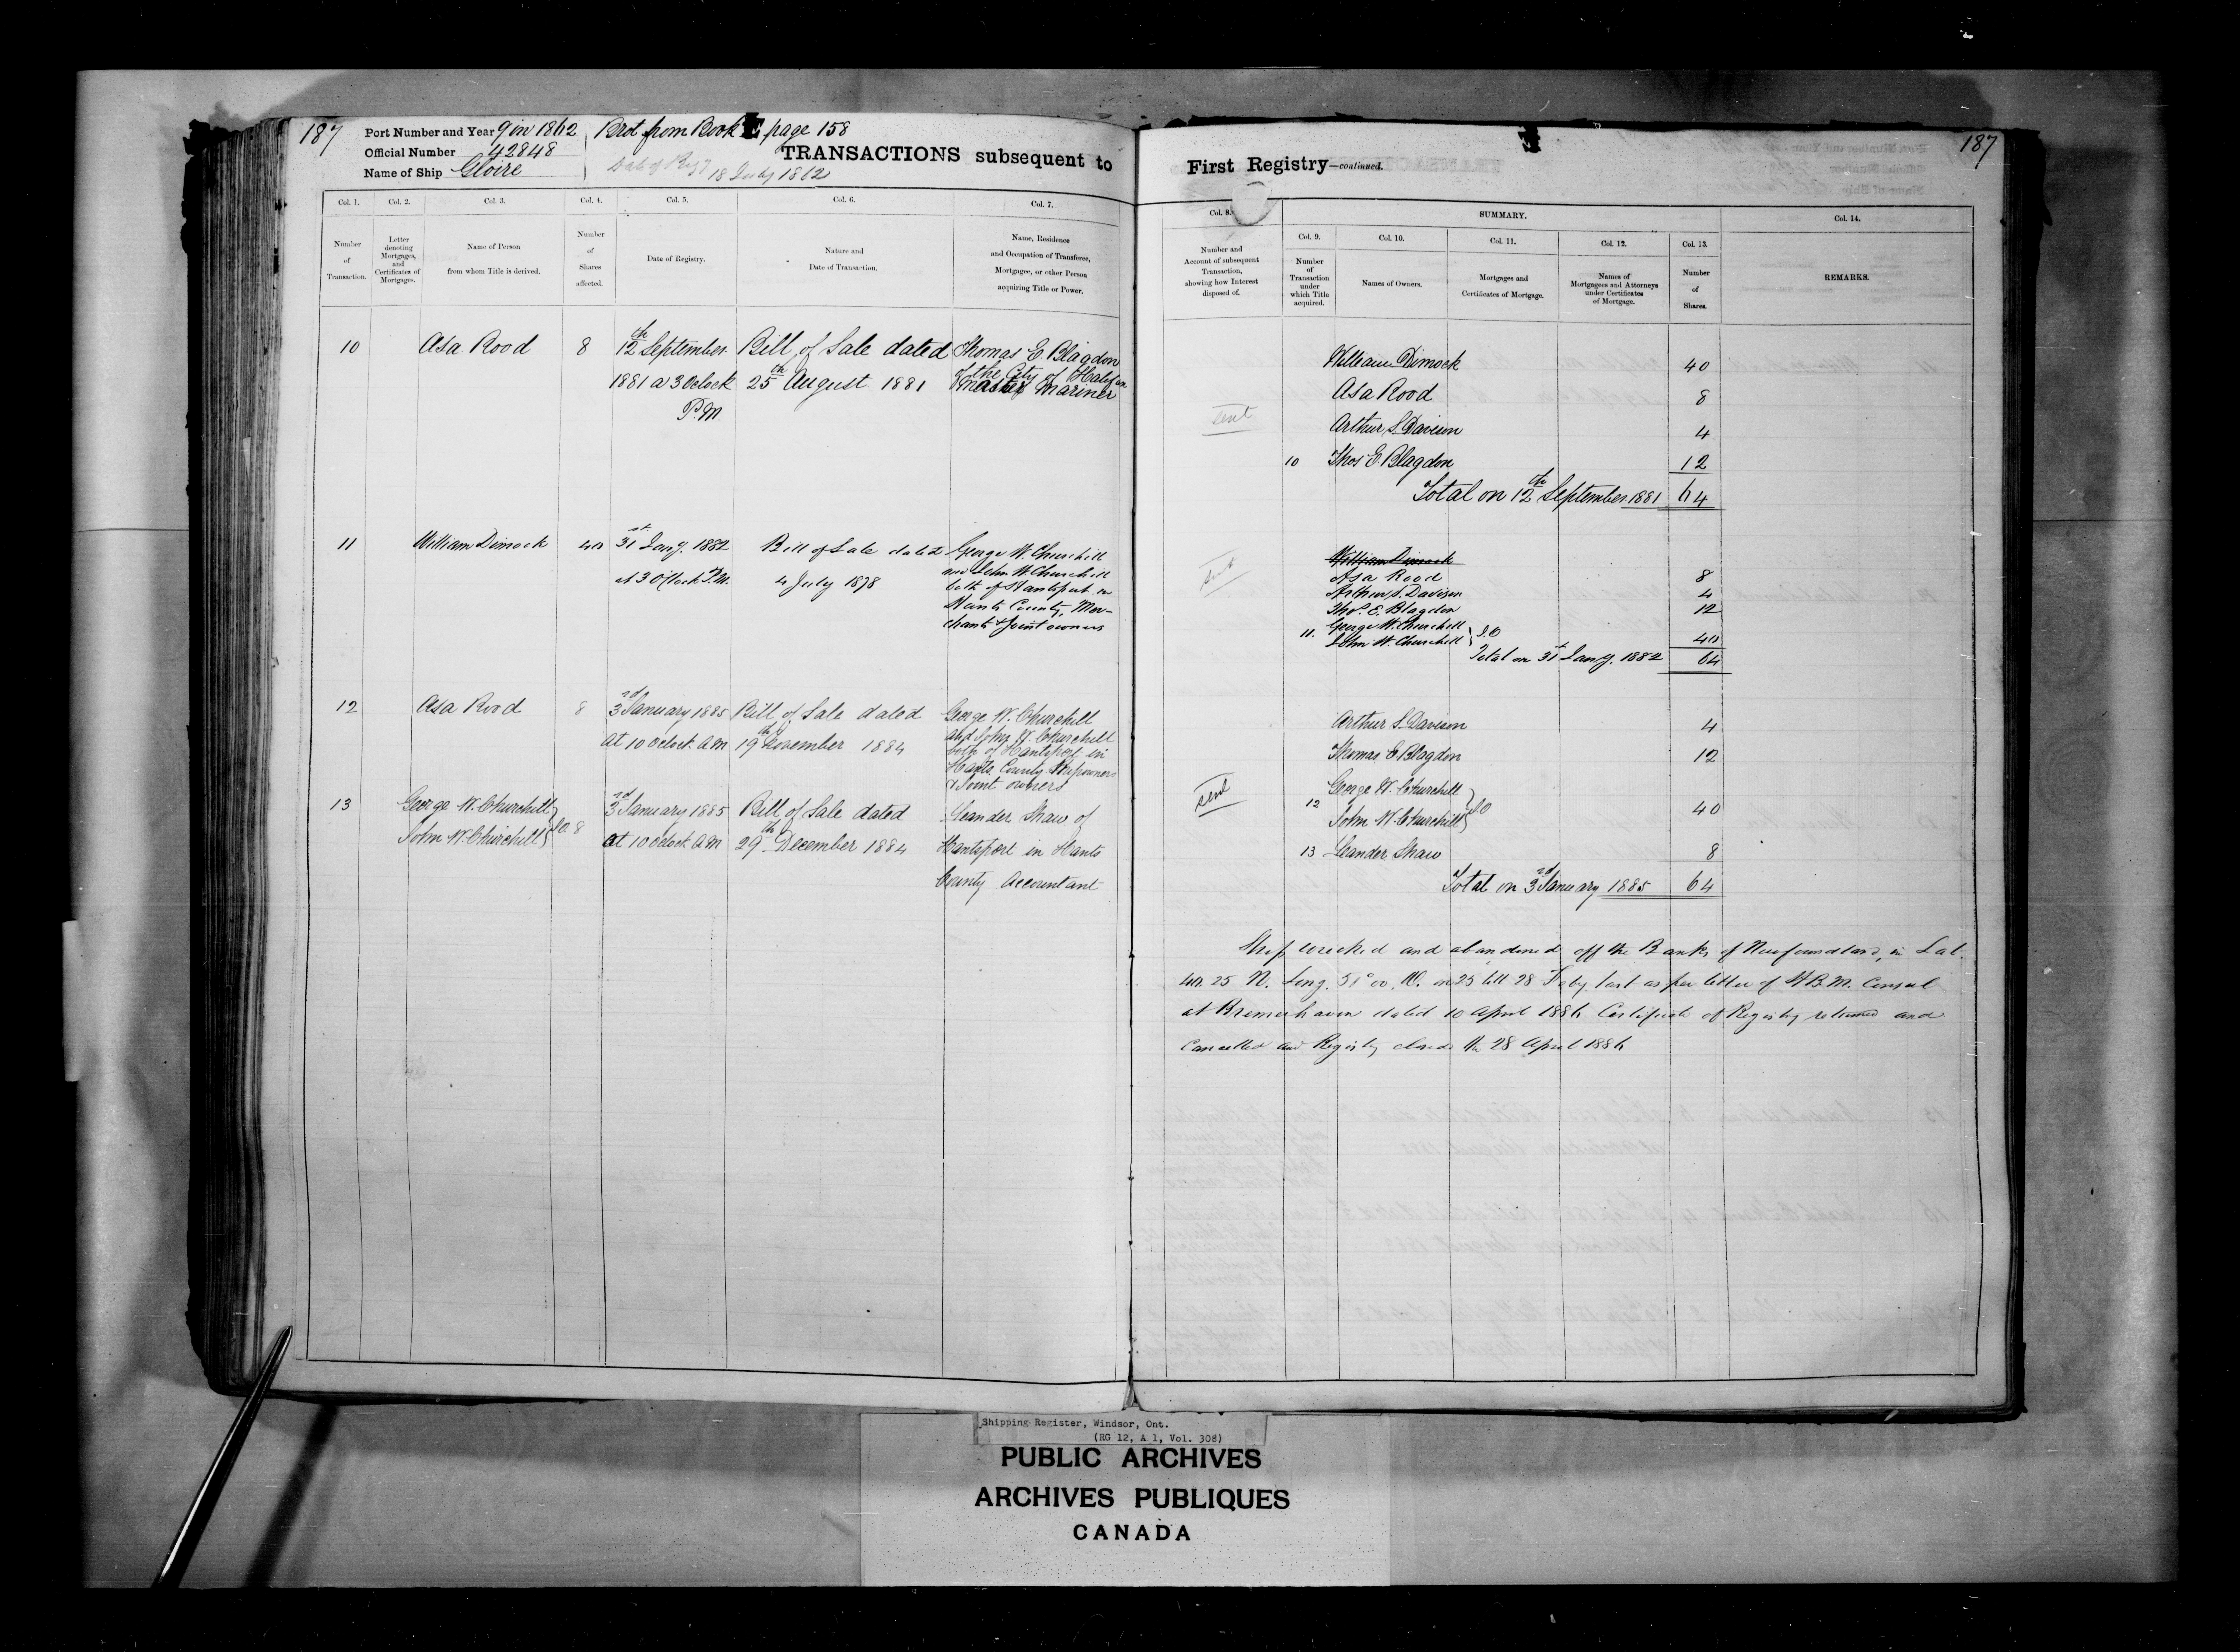 187
Port Number and Year 9 in 1862
Brot from Book E page 158
Official Number 42848
Name of Ship Gloire
18 July 1862
TRANSACTIONS subsequent to
Col. 1.
Col. 2.
Col. 3.
Col. 4.
Col. 5.
Col. 6.
Col. 7.
Number
of
Transaction.
Letter
denoting
Mortgages,
and
Certificates of
Mortgages.
Name of Person
from whom Title is derived.
Number
of
Shares
affected.
Date of Registry.
Nature and
Date of Transaction.
Name, Residence
and Occupation of Transferee,
Mortgagee, or other Person
acquiring Title or Power.
10 Asa Rood 8 12th September Bill of Sale dated Thomas E Blagdon
of the City of Halifax
1881 a 3 Oclock 25th August 1881 Master Mariner
P.M.
11 William Dimock 40 31st Jany. 1882 Bill of Sale dated George W. Churchill
and John W Churchill
at 3 O'Clock P.M. 4 July 1878 both of Hantsport in
Hants County, Mer-
chants & Joint owners
12 Asa Rood 8 3rd January 1885 Bill of Sale dated George W. Churchill
and John W. Churchill
At 10 Oclock A.M 19th November 1884 both of Hantsport in
Hants County Shipowners
& Joint owners
13 George W. Churchill 3rd January 1885 Bill of Sale dated Leander Shaw of
John W. Churchill J.O. 8 at 10 Oclock A.M 29th December 1884 Hantsport in Hants
County Accountant
187
First Registry—continued.
Col. 8.
SUMMARY.
Col. 14.
Col. 9.
Col. 10.
Col. 11.
Col. 12.
Col. 13.
Number and
Account of subsequent
Transaction,
showing how Interest
disposed of.
Number
of
Transaction
under
which Title
acquired.
Names of Owners.
Mortgages and
Certificates of Mortgage.
Names of
Mortgagees and Attorneys
under Certificates
of Mortgage.
Number
of
Shares.
REMARKS.
William Dimock 40
Asa Rood 8
sent
Arthur S. Davison 4
10 Thos E Blagdon 12
Total on 12th September 1881 64
William Dimock
sent
Asa Rood 8
Arthur S. Davison 4
Thos. E. Blagdon 12
11. George W. Churchill
John W. Churchill J.O 40
Total on 31st Jany. 1882 64
Arthur S. Davison 4
Thomas E Blagdon 12
sent
12 George W. Churchill
John W. Churchill JO 40
13 Leander Shaw 8
Total on 3rd January 1885 64
Ship wrecked and abandoned off the Banks of Newfoundland, in Lat.
25 N. Long. 51° 00. W. on 25 till 28 Feby last as per letter of H.B.M. Consul
at Bremerhaven dated 10 April 1886 Certificate of Registry returned and
Cancelled and Registry closed the 28 April 1886
Shipping Register, Windsor, Ont.
(RG 12, A 1, Vol. 308)
PUBLIC ARCHIVES
ARCHIVES PUBLIQUES
CANADA